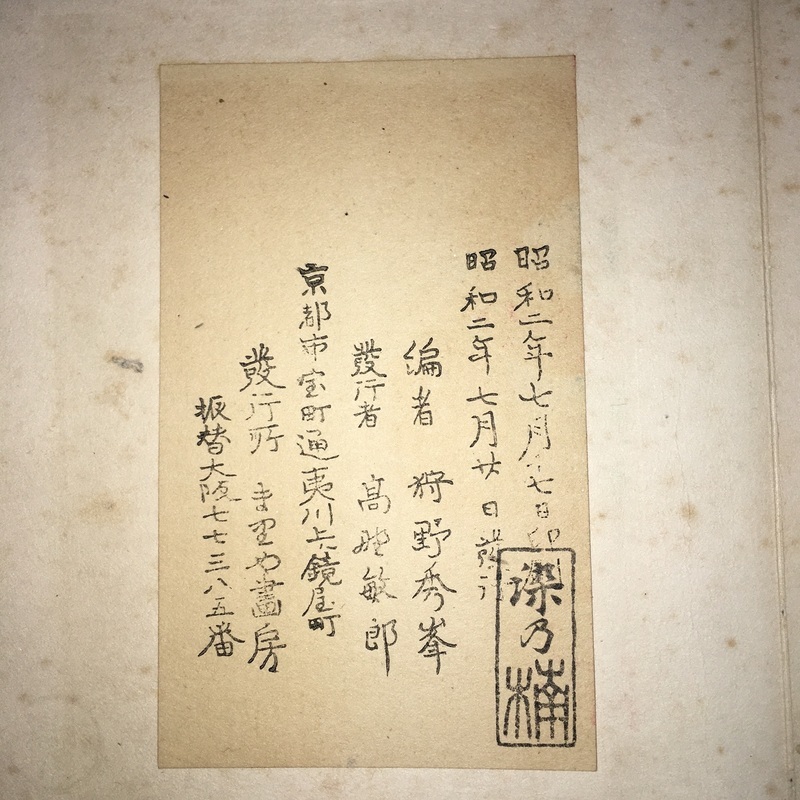 昭和二年七月十七日印
昭和二年七月廿日發行
編者 狩野秀峯
發行者 高野敏郎
京都市室町通夷川上ル鏡屋町
發行所 まりや畵房
振替大阪七七三八五番
染乃楠